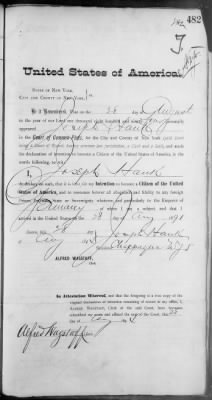 482
United States of America,
STATE OF NEW YORK,
CITY AND COUNTY OF NEW YORK,
Be it Remembered, That on the 28 day of August
in the year of our Lord one thousand eight hundred and ninety personally
appeared Joseph Hauk
in the Court of Common Pleas, for the City and County of New York (said Court
being a Court of Record, having common law jurisdiction, a Clerk and a Seal), and made
his declaration of intention to become a Citizen of the United States of America, in the
words following, to wit:
I, Joseph Hauk
declare on oath, that it is bona fide my Intention to become a Citizen of the United
States of America, and to renounce forever all allegiance and fidelity to any foreign
Prince, Potentate, State or Sovereignty whatever, and particularly to the Emperor of
Germany of whom I am a subject, and that I
arrived in the United States on the 28 of Aug 189
Sworn this 28
day of Aug 189 Joseph Hauk
ALFRED WAGSTAFF,
Clerk.
In Attestation Whereof, and that the foregoing is a true copy of the
original declaration of intention remaining of record in my office, I,
ALFRED WAGSTAFF, Clerk of the said Court, have hereunto
subscribed my name and affixed the seal of the Court, this
day of
Alfred Wagstaff Clerk.